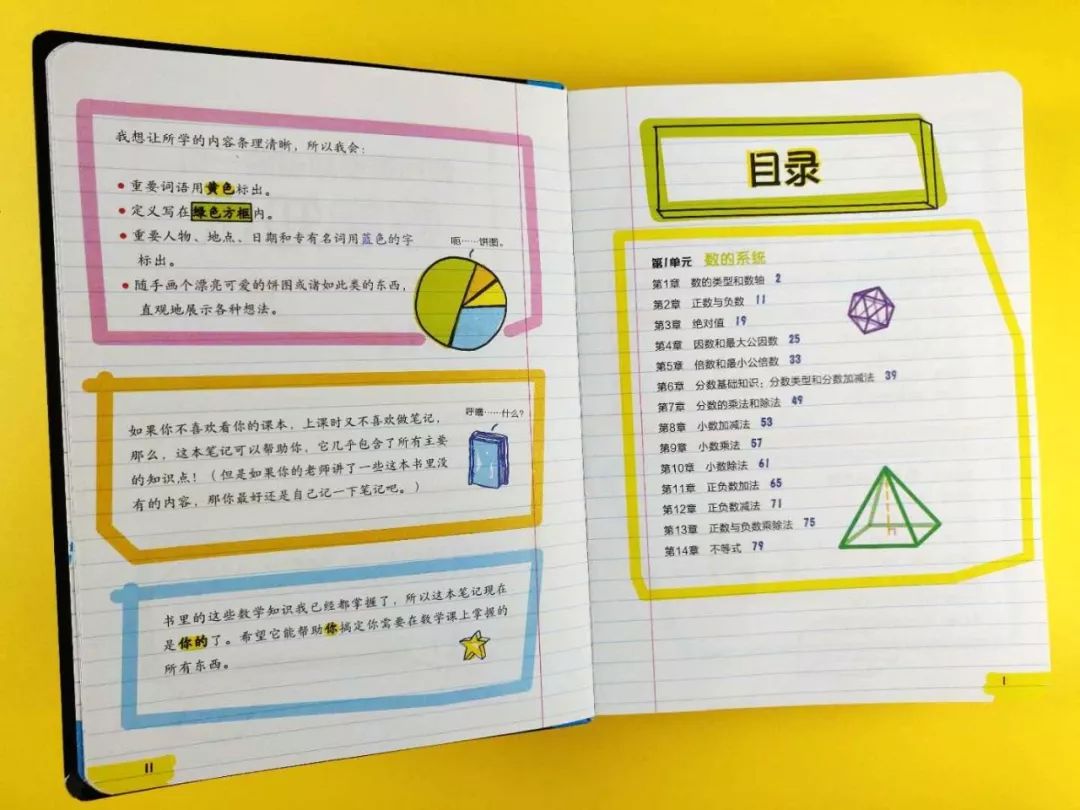 我想让所学的内容条理清晰，所以我会：
• 重要词语用黄色标出。
• 定义写在绿色方框内。
• 重要人物、地点、日期和专有名词用蓝色的字
标出。
呃……饼图。
• 随手画个漂亮可爱的饼图或诸如此类的东西，
直观地展示各种想法。
如果你不喜欢看你的课本，上课时又不喜欢做笔记，
那么，这本笔记可以帮助你，它几乎包含了所有主要
的知识点！（但是如果你的老师讲了一些这本书里没
有的内容，那你最好还是自己记一下笔记吧。）
呼噜……什么？
书里的这些数学知识我已经都掌握了，所以这本笔记现在
是你的了。希望它能帮助你搞定你需要在数学课上掌握的
所有东西。
II
目录
第1单元 数的系统
第1章 数的类型和数轴 2
第2章 正数与负数 11
第3章 绝对值 19
第4章 因数和最大公因数 25
第5章 倍数和最小公倍数 33
第6章 分数基础知识：分数类型和分数加减法 39
第7章 分数的乘法和除法 49
第8章 小数加减法 53
第9章 小数乘法 57
第10章 小数除法 61
第11章 正负数加法 65
第12章 正负数减法 71
第13章 正数与负数乘除法 75
第14章 不等式 79
I